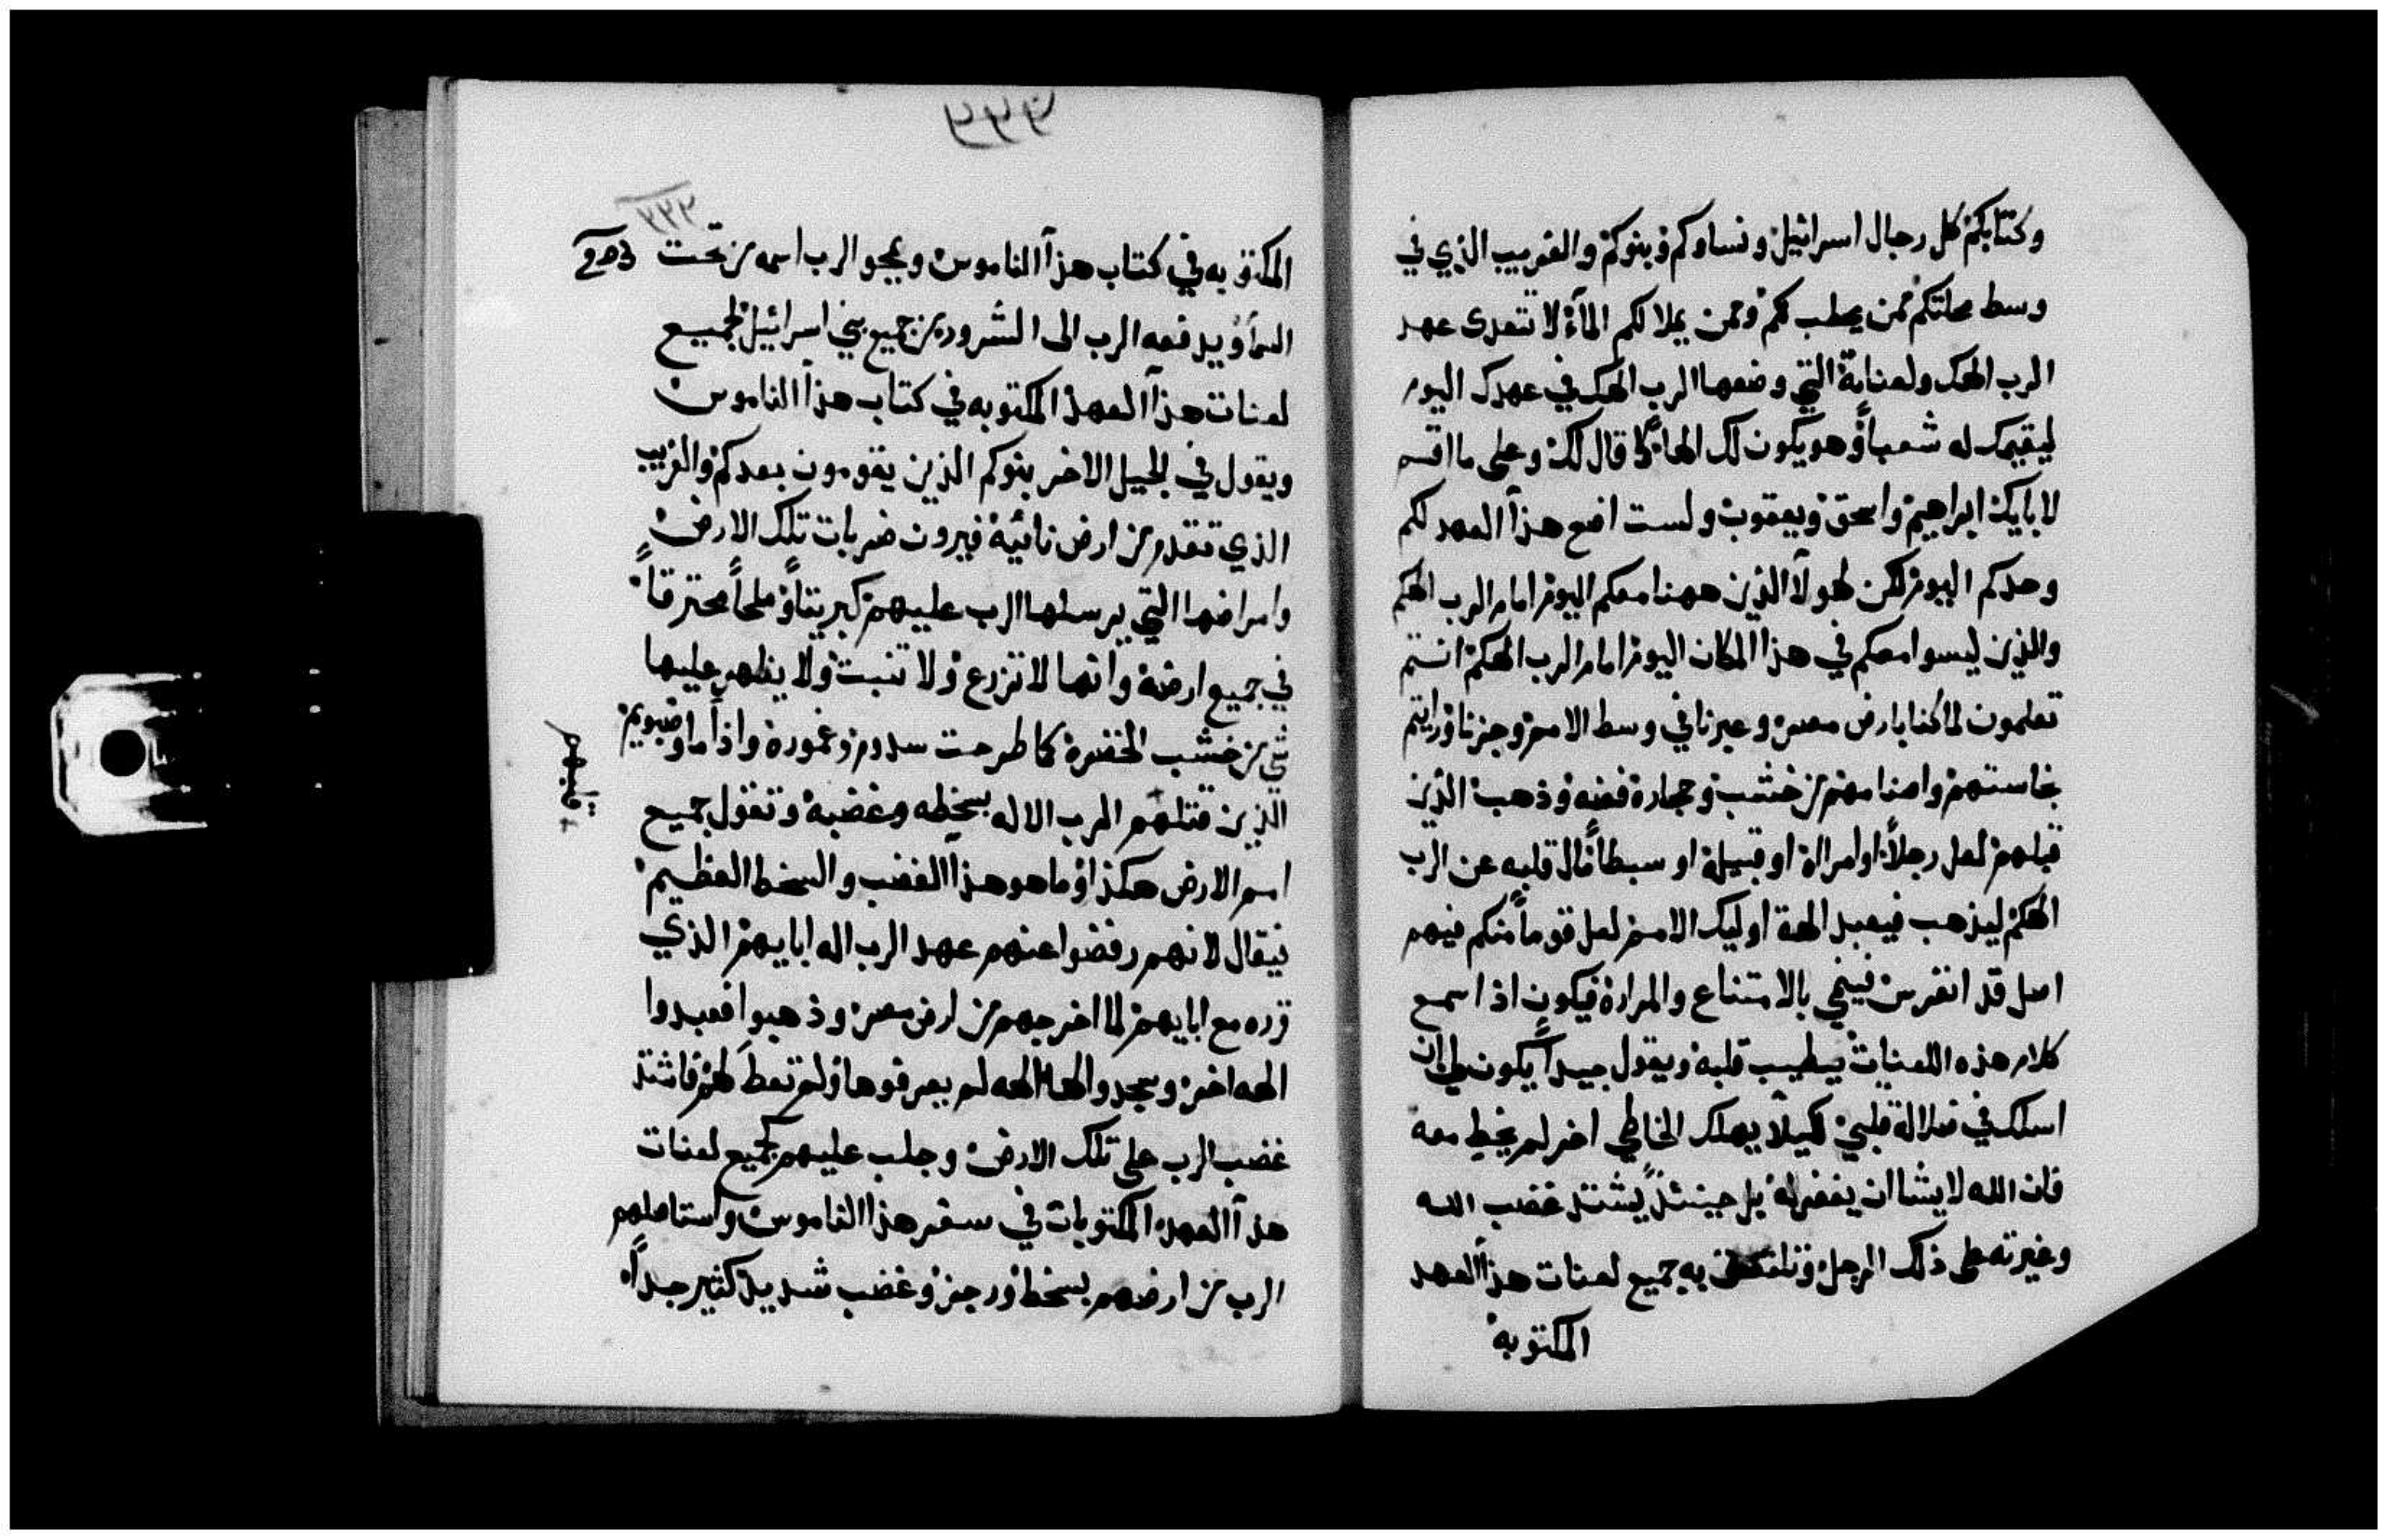 وكتابكم كل رجال اسرائيل ونساوكم وبنوكم والغريب الذي في
وسط محلتكم ممن يحطب لكم وممن يملا لكم المآء لا تتعدى عهد
الرب الهك ولعناته التي وضعها الرب الهك في عهدك اليوم
ليقيمك له شعباً وهو يكون لك الهاً كما قال لك وعلى ما اقسم
لابايك ابراهيم واسحق ويعقوب ولست اضع هذا العهد لكم
وحدكم اليوم لكن لهولآ الذين ههنا معكم اليوم امام الرب الهكم
والذين ليسوا معكم في هذا المكان اليوم امام الرب الهكم انتم
تعلمون لما كنا بارض مصر وعبرنا في وسط الامم وجزنا ورايتم
نجاستهم واصنامهم من خشب وحجارة فضه وذهب الذين
قبلهم لعل رجلاً او امراة او قبيلة او سبطاً مال قلبه عن الرب
الهكم ليذهب فيعبد الهة اوليك الامم لعل قوماً منكم فيهم
اصل قد انغرس فينمي بالامتناع والمرارة فيكون اذا سمع
كلام هذه اللعنات يطيب قلبه ويقول جيداً يكون لي ان
اسلك في ضلالة قلبي كيلا يهلك الخاطي اخر لم يخط معه
فان الله لا يشا ان يغفر له بل حينئذٍ يشتد غضب الله
وغيرته على ذلك الرجل وتلتحق به جميع لعنات هذا العهد
المكتوبه
المكتوبه في كتاب هذا الناموس ويمحو الرب اسمه من تحت
203
السمآ ويدفعه الرب الى الشرور من جميع بني اسرائيل لجميع
لعنات هذا العهد المكتوبه في كتاب هذا الناموس
ويقول في الجيل الاخر بنوكم الذين يقومون بعدكم والغريب
الذي تقدم من ارض نائية فيرون ضربات تلك الارض
وامراضها التي يرسلها الرب عليهم كبريتاً وملحاً محترقاً
في جميع ارضه وانها لا تزرع ولا تنبت ولا يظهر عليها
شي من خشب الخضرة كما طرحت سدوم وغمورة واذاما وصبويم
الذين قتلهم الرب الاله بسخطه وغضبه وتقول جميع
امم الارض هكذا وما هو هذا الغضب والسخط العظيم
فيقال لانهم رفضوا عنهم عهد الرب اله ابايهم الذي
قرره مع ابايهم لما اخرجهم من ارض مصر وذهبوا فعبدوا
الهه اخر وسجدوا لها الهه لم يعرفوها ولم تعط لهم فاشتد
غضب الرب على تلك الارض وجلب عليهم كجميع لعنات
هذا العهد المكتوبات في سفر هذا الناموس واستاصلهم
الرب من ارضهم بسخط ورجز وغضب شديد كثير جداً